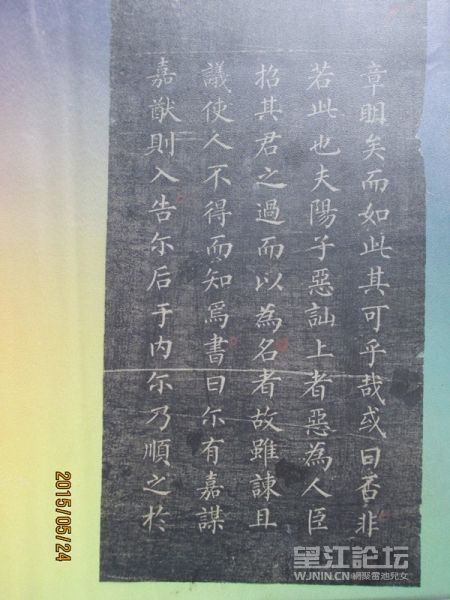 章眀矣而如此其可乎哉或曰否非
若此也夫陽子惡訕上者惡為人臣
招其君之過而以為名者故雖諫且
議使人不得而知焉書曰尔有嘉謀
嘉猷則入告尔后于内尔乃順之於
2015/05/24
望江論坛
WJNIN.CN @網聚雷池兒女